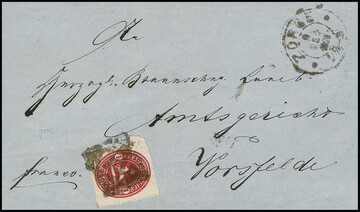 ZORGE
An
Herzogl. Braunschw. Lüneb.
Amtsgericht
Vorsfelde
franco.